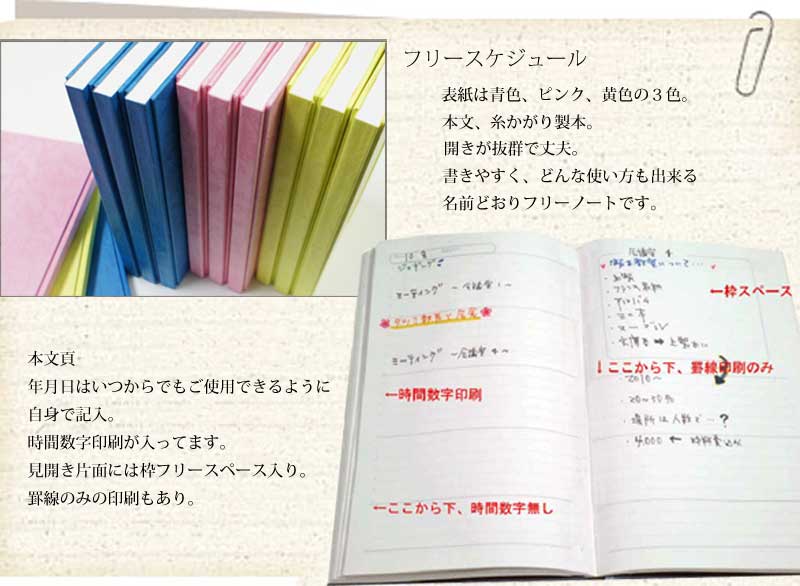 フリースケジュール
表紙は青色、ピンク、黄色の３色。
本文、糸かがり製本。
開きが抜群で丈夫。
書きやすく、どんな使い方も出来る
名前どおりフリーノートです。
本文頁
年月日はいつからでもご使用できるように
自身で記入。
時間数字印刷が入ってます。
見開き片面には枠フリースペース入り。
罫線のみの印刷もあり。
ミーティング ～会議室
←時間数字印刷
←ここから下、時間数字無し
←枠スペース
↓ここから下、罫線印刷のみ
・2010～
・20～50名
・場所は人数で…?
・4,000 ←